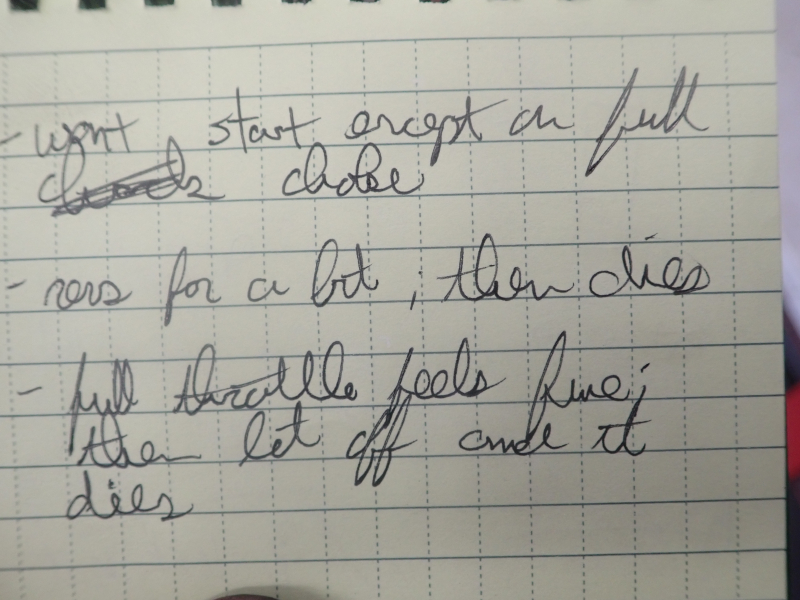 - wont start except on full
choke
- revs for a bit, then dies
- full throttle feels fine;
then let off and it
dies